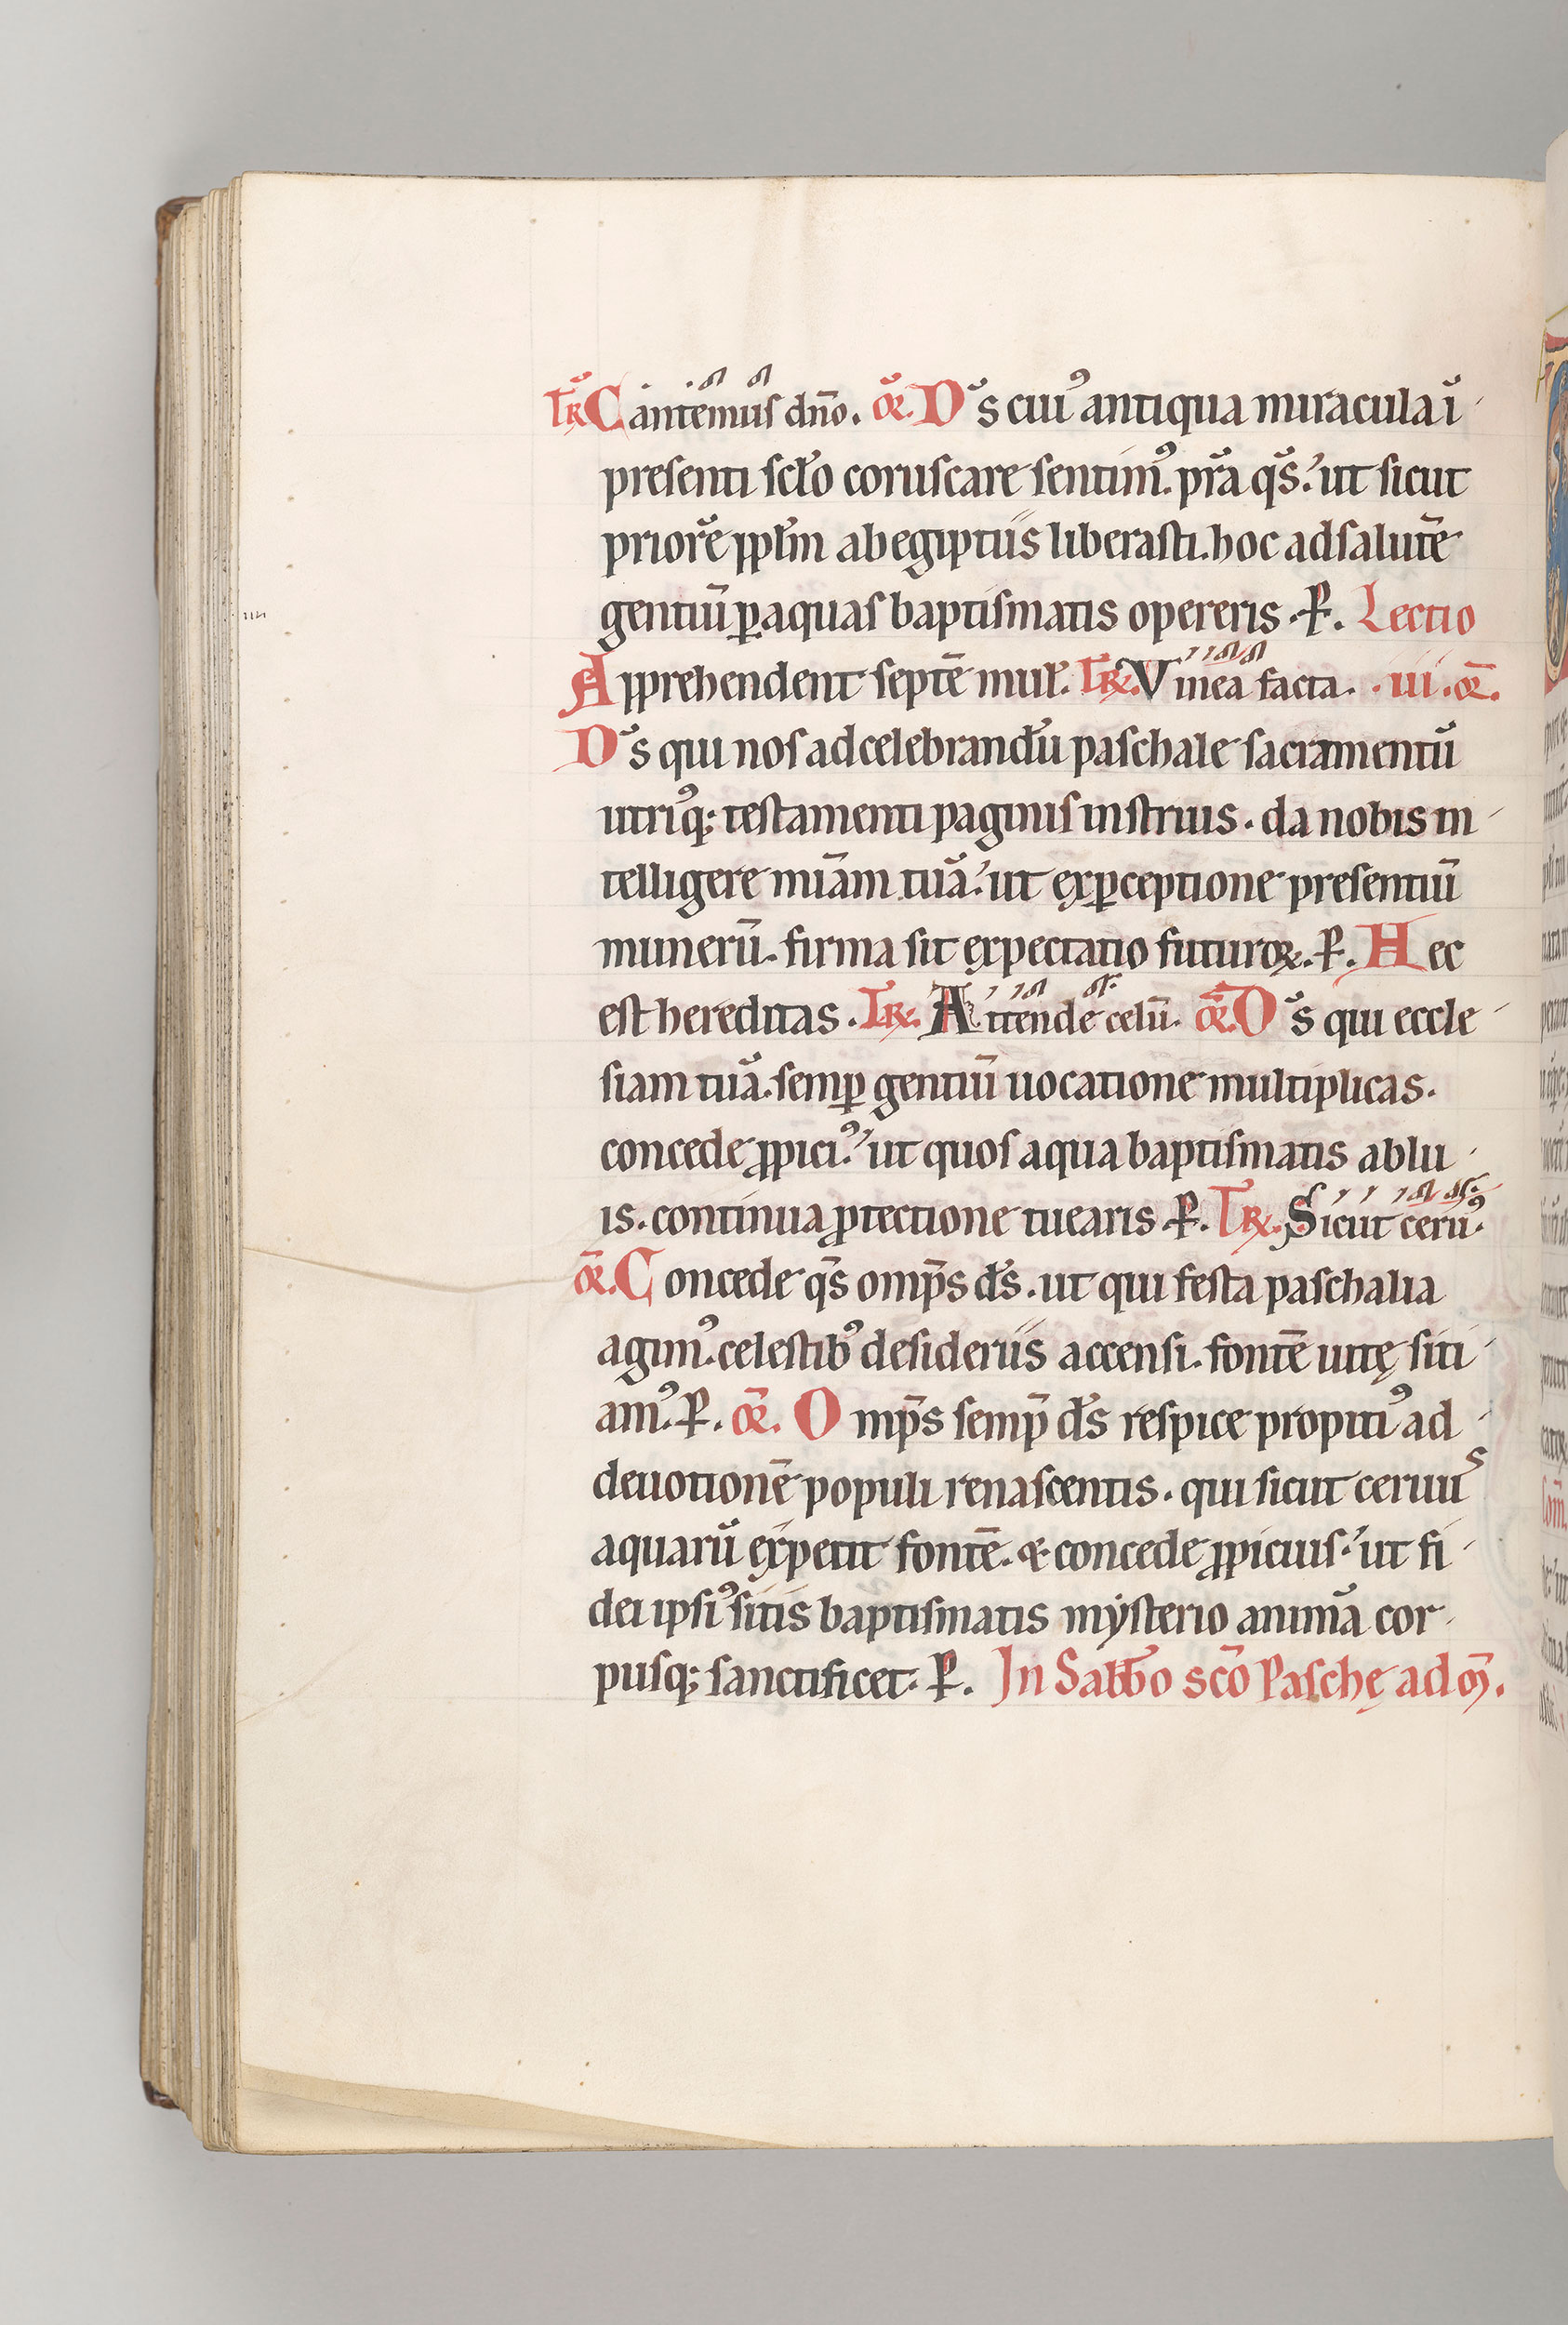 Tr̄ Cantemus dn̄o. or̄. Ds̄ cui᷒ antiqua miracula ī
presenti sc̄lo coruscare sentim᷒. pr̄a qs̄. ut sicut
priorē pp̄lm ab egiptiis liberasti. hoc ad salutē
gentiū ꝑ aquas baptismatis opereris. P̄. Lectio
Apprehendent septē mul̄. Tr̄. Vinea facta. .iii. or̄.
Ds̄ qui nos ad celebrandū paschale sacramentū
utri᷒q; testamenti paginis instruis. da nobis in
telligere mīam tuā. ut ex ꝑceptione presentiū
munerū. firma sit expectatio futuroꝝ. P̄. Hec
est hereditas. Tr̄. Attende celū. or̄. Ds̄ qui eccle
siam tuā. semꝑ gentiū uocatione multiplicas.
concede ꝓpici᷒. ut quos aqua baptismatis ablu
is. continua ꝓtectione tuearis. P̄. Tr̄. Sicut ceru᷒.
or̄. Concede qs̄ omp̄s ds̄. ut qui festa paschalia
agim᷒. celestib᷒ desideriis accensi. fontē uitę siti
am᷒. P̄. or̄. Omp̄s semp̄ ds̄ respice propiti᷒ ad
deuotionē populi renascentis. qui sicut ceruus
aquarū expetit fontē. & concede ꝓpicius. ut fi
dei ipsi᷒ sitis baptismatis mẏsterio animā cor
pusq; sanctificet. P̄. In Sabb̄o sc̄o Paschę ad m̄.
iiii